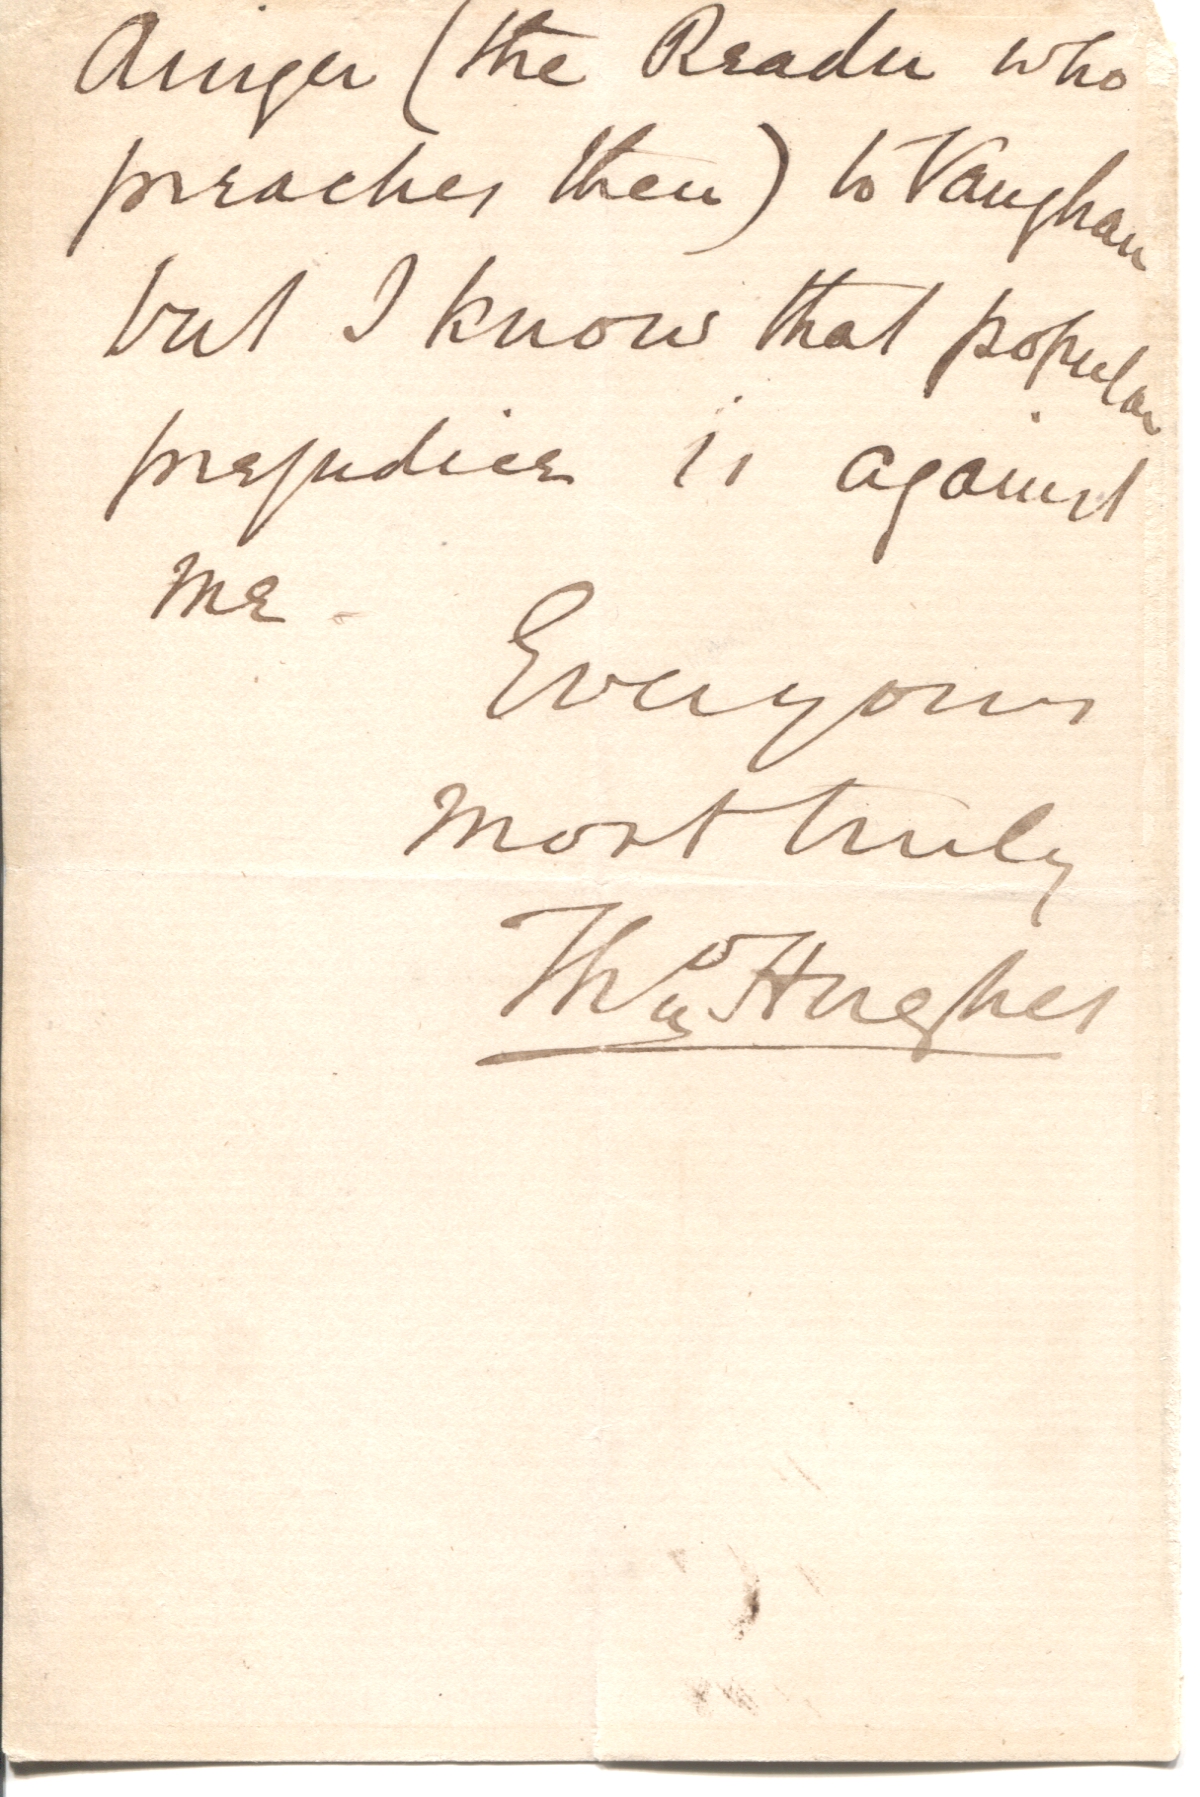 Ainger (the Reader who
preaches then) to Vaughan
but I know that popular
prejudice is against
me -
Ever yours
most truly
Thos Hughes